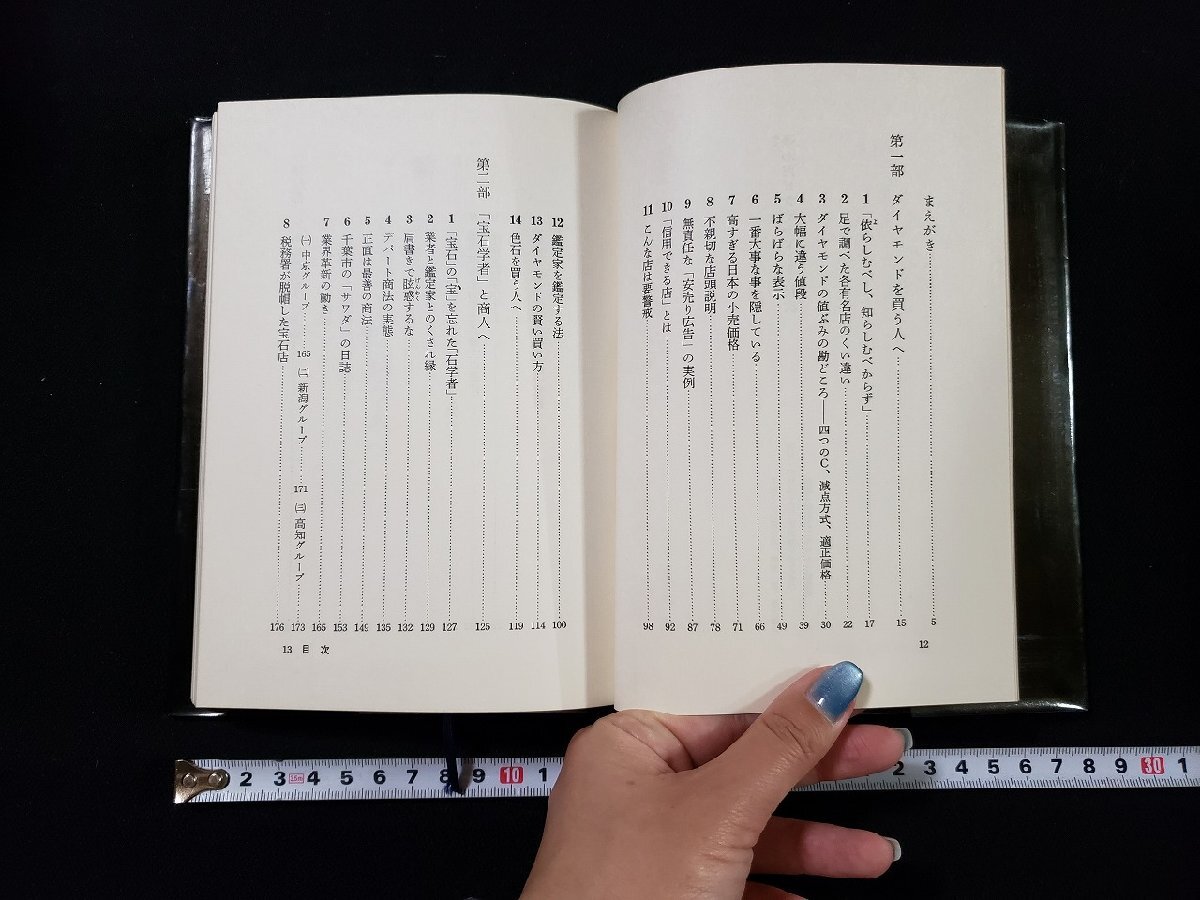 まえがき 5
第一部 ダイヤモンドを買う人へ 15
1 「依らしむべし、知らしむべからず」 17
2 足で調べた各有名店のくい違い 22
3 ダイヤモンドの値ぶみの勘どころ——四つのC、減点方式、適正価格 30
4 大幅に違う値段 39
5 ばらばらな表示 49
6 一番大事な事を隠している 66
7 高すぎる日本の小売価格 71
8 不親切な店頭説明 78
9 無責任な「安売り広告」の実例 87
10 「信用できる店」とは 92
11 こんな店は要警戒 98
12
12 鑑定家を鑑定する法 100
13 ダイヤモンドの賢い買い方 114
14 色石を買う人へ 119
第二部 「宝石学者」と商人へ 125
1 「宝石」の「宝」を忘れた「石学者」 127
2 業者と鑑定家とのくされ縁 129
3 肩書きで眩惑するな 132
4 デパート商法の実態 135
5 正直は最善の商法 149
6 千葉市の「サワダ」の日誌 153
7 業界革新の動き 165
㈠ 中京グループ 165 ㈡ 新潟グループ 171 ㈢ 高知グループ 173
8 税務署が脱帽した宝石店 176
13 目次
2 3 4 5 6 7 8 9 10 1
2 3 4 5 6 7 8 9 30 1